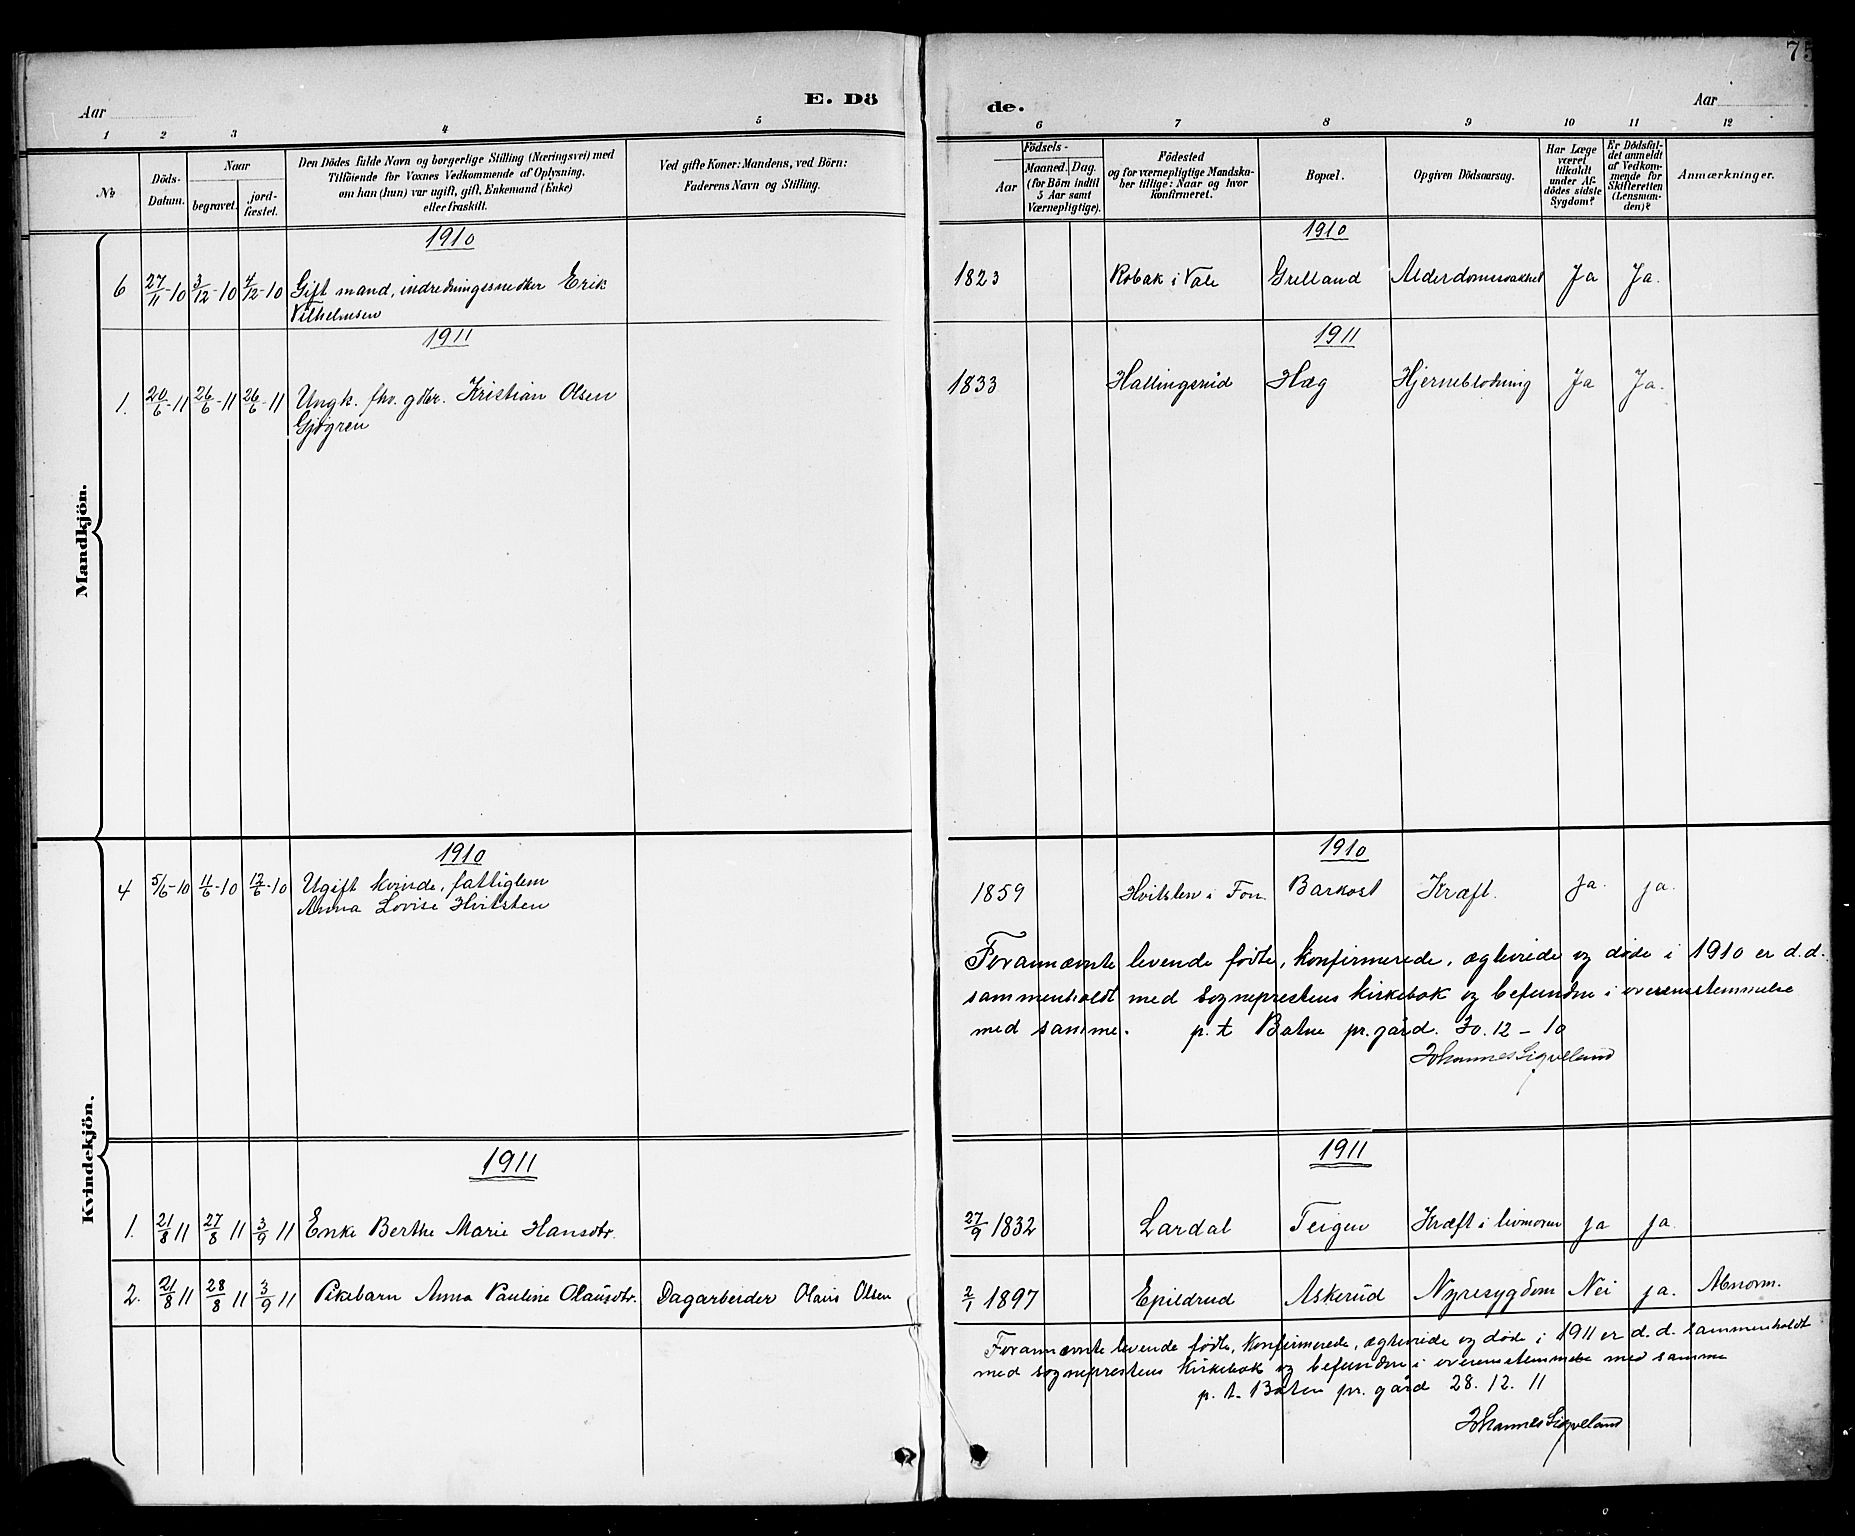 75
Aar
E. Dö
de.
Aar
1 2 3 4 5 6 7 8 9 10 11 12
No
Döds-
Datum.
Naar
begravet.
jord-
fæstet.
Den Dödes fulde Navn og borgerlige Stilling (Næringsvei) med
Tilföiende for Voxnes Vedkommende af Oplysning,
om han (hun) var ugift, gift, Enkemand (Enke)
eller fraskilt.
Ved gifte Koner: Mandens, ved Börn:
Faderens Navn og Stilling.
Födsels-
Aar
Maaned. Dag.
(for Börn indtil
5 Aar samt
Værnepligtige).
Födested
og for værnepligtige Mandska-
ber tillige: Naar og hvor
konfirmeret.
Bopæl.
Opgiven Dödsaarsag.
Har Læge
været
tilkaldt
under Af-
dödes sidste
Sygdom?
Er Dödsfal-
det anmeldt
af Vedkom-
mende for
Skifteretten
(Lensman-
den)?
Anmærkninger.
Mandkjön.
1910
1910
6 27/11-10 3/12-10 4/12-10 Gift mand, indredningssnedker Erik 1823 Robak i Vale Grelland Alderdomssvakhet Ja Ja.
Vilhelmsen
1911
1911
1. 20/6-11 26/6-11 26/6-11 Ungk. fhv. gkr. Kristian Olsen 1833 Hallingsrud Hæg Hjerneblødning Ja Ja.
Gjøgren
Kvindekjön.
1910
1910
4 5/6-10 11/6-10 12/6-10 Ugift kvinde, fattiglem 1859 Hvitsten i Fon Barkost Kræft. ja. ja.
Anna Lovise Hvitsten
Forannævnte levende fødte, konfirmerede, ægteviede og døde i 1910 er d.d.
sammenholdt med sogneprestens kirkebok og befundne i overensstemmelse
med samme. p. t Botne pr. gård. 30. 12 - 10
Johannes Sigveland
1911
1911
1. 21/8 11 27/8 11 3/9 11 Enke Berthe Marie Hansdtr. 27/9 1832 Lardal Teigen Kræft i livmoren ja ja.
2. 21/8 11 28/8 11 3/9 11 Pikebarn Anna Pauline Olausdtr. Dagarbeider Olaus Olsen 2/1 1897 Epildrud Askerud Nyresygdom Nei ja. Abnorm.
Forannævnte levende fødte, konfirmerede, ægteviede og døde i 1911 er d. d. sammenholdt
med sogneprestens kirkebok og befundne i overensstemmelse med samme
p. t. Botne pr. gård 28. 12. 11
Johannes Sigveland